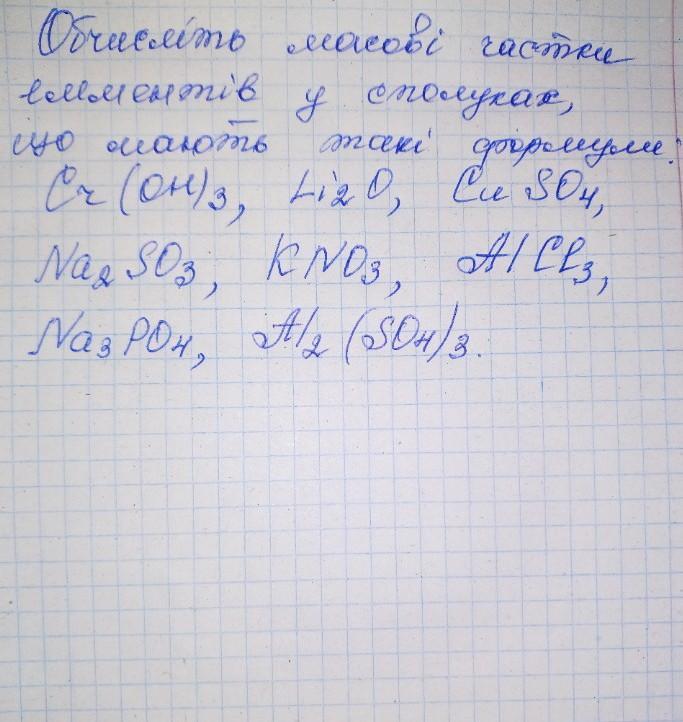 Обчисліть масові частки
елементів у сполуках,
що мають такі формули:
Cr(OH)3, Li2O, CuSO4,
Na2SO3, KNO3, AlCl3,
Na3PO4, Al2(SO4)3.